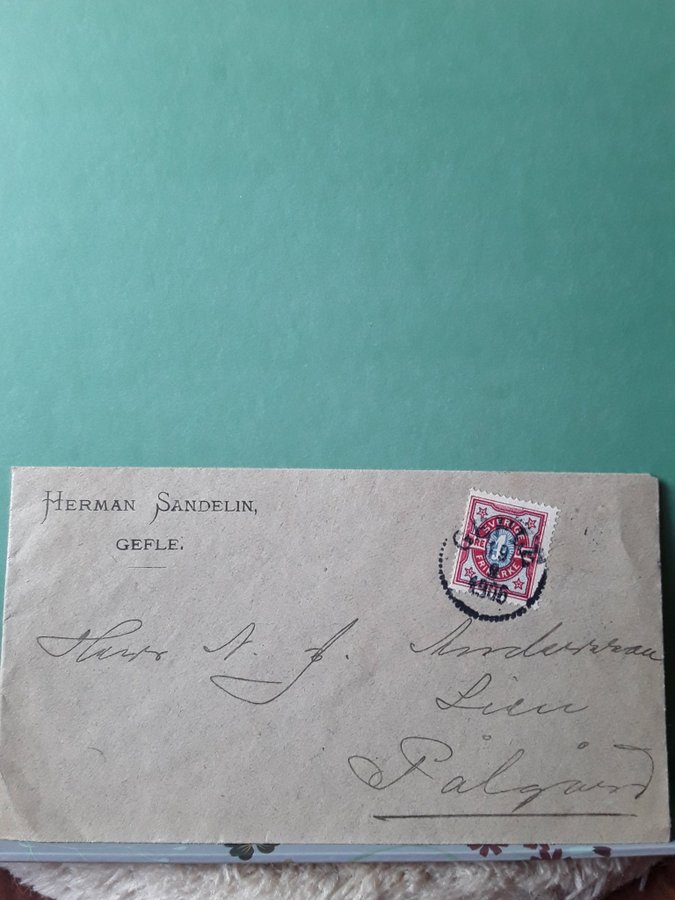 HERMAN SANDELIN,
GEFLE.
SVERIGE
1
FRIMÄRKE
GEFLE
19
1906
Herr N. J. Andersson
Lien
Pålgård